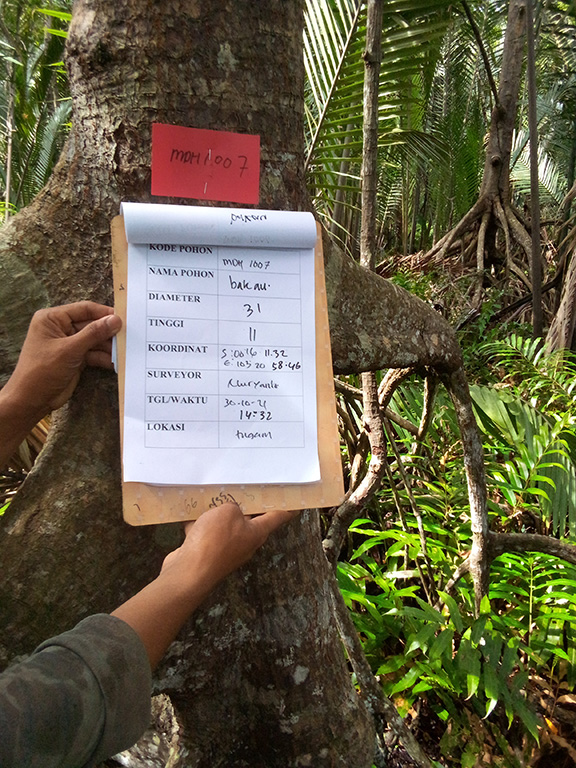 MDH 1007
KODE POHON MDH 1007
NAMA POHON bakau.
DIAMETER 31
TINGGI 11
KOORDINAT S : 00 16 11.32
E : 103 20 58.46
SURVEYOR Nuryanto
TGL/WAKTU 30-10-21
14:32
LOKASI